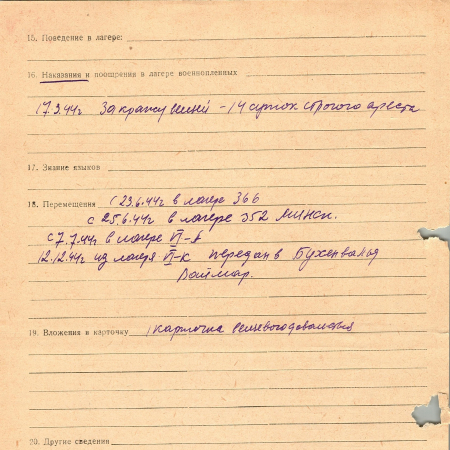 15. Поведение в лагере:
16. Наказания и поощрения в лагере военнопленных
17.3.44г За кражу вещей - 14 суток строгого ареста
17. Знание языков
18. Перемещения с 23.6.44г в лагере 366
с 25.6.44г в лагере 352 Минск.
с 7.7.44г в лагере VI-А
12.12.44г из лагеря VI-К передан в Бухенвальд
Ваймар.
19. Вложения в карточку 1 карточка вещевого довольствия
20. Другие сведения